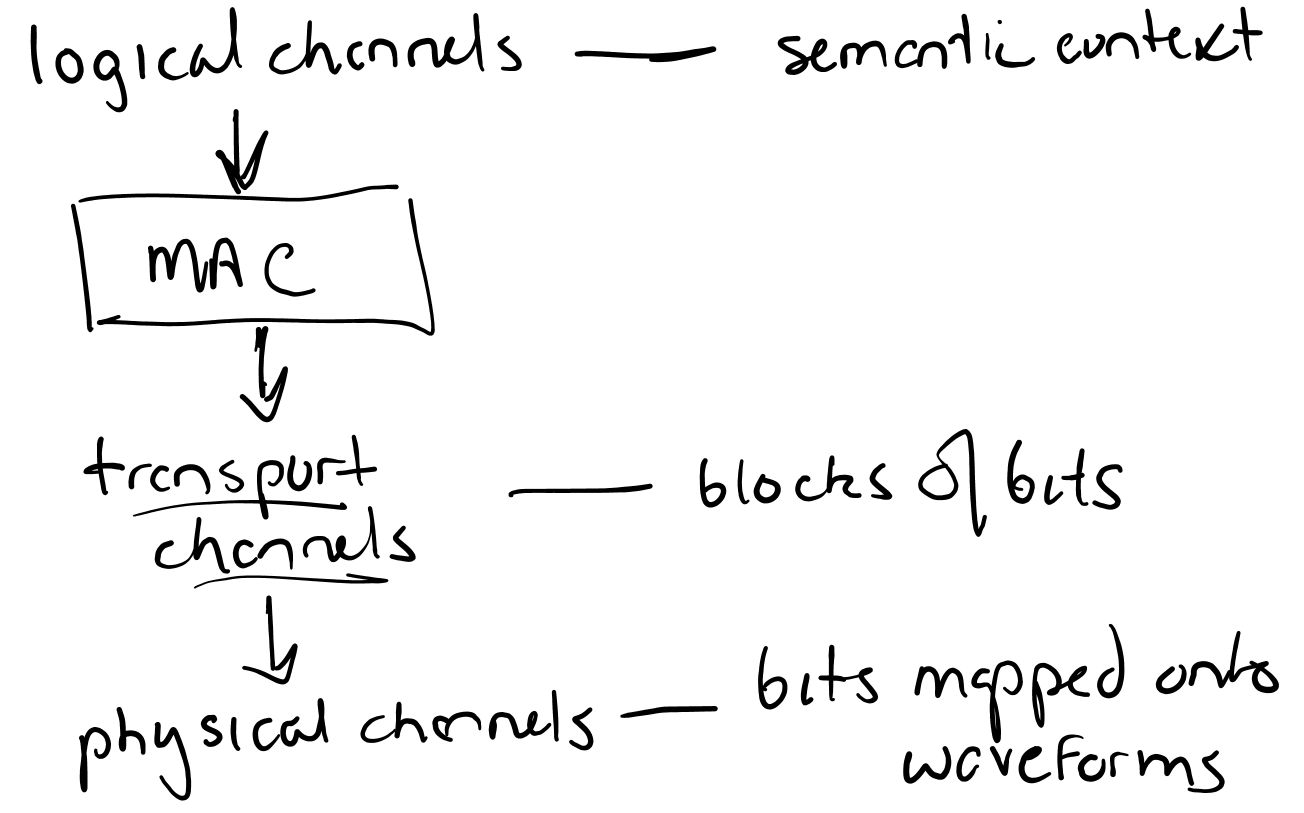 logical channels — semantic context
MAC
transport — blocks of bits
channels
physical channels — bits mapped onto
waveforms